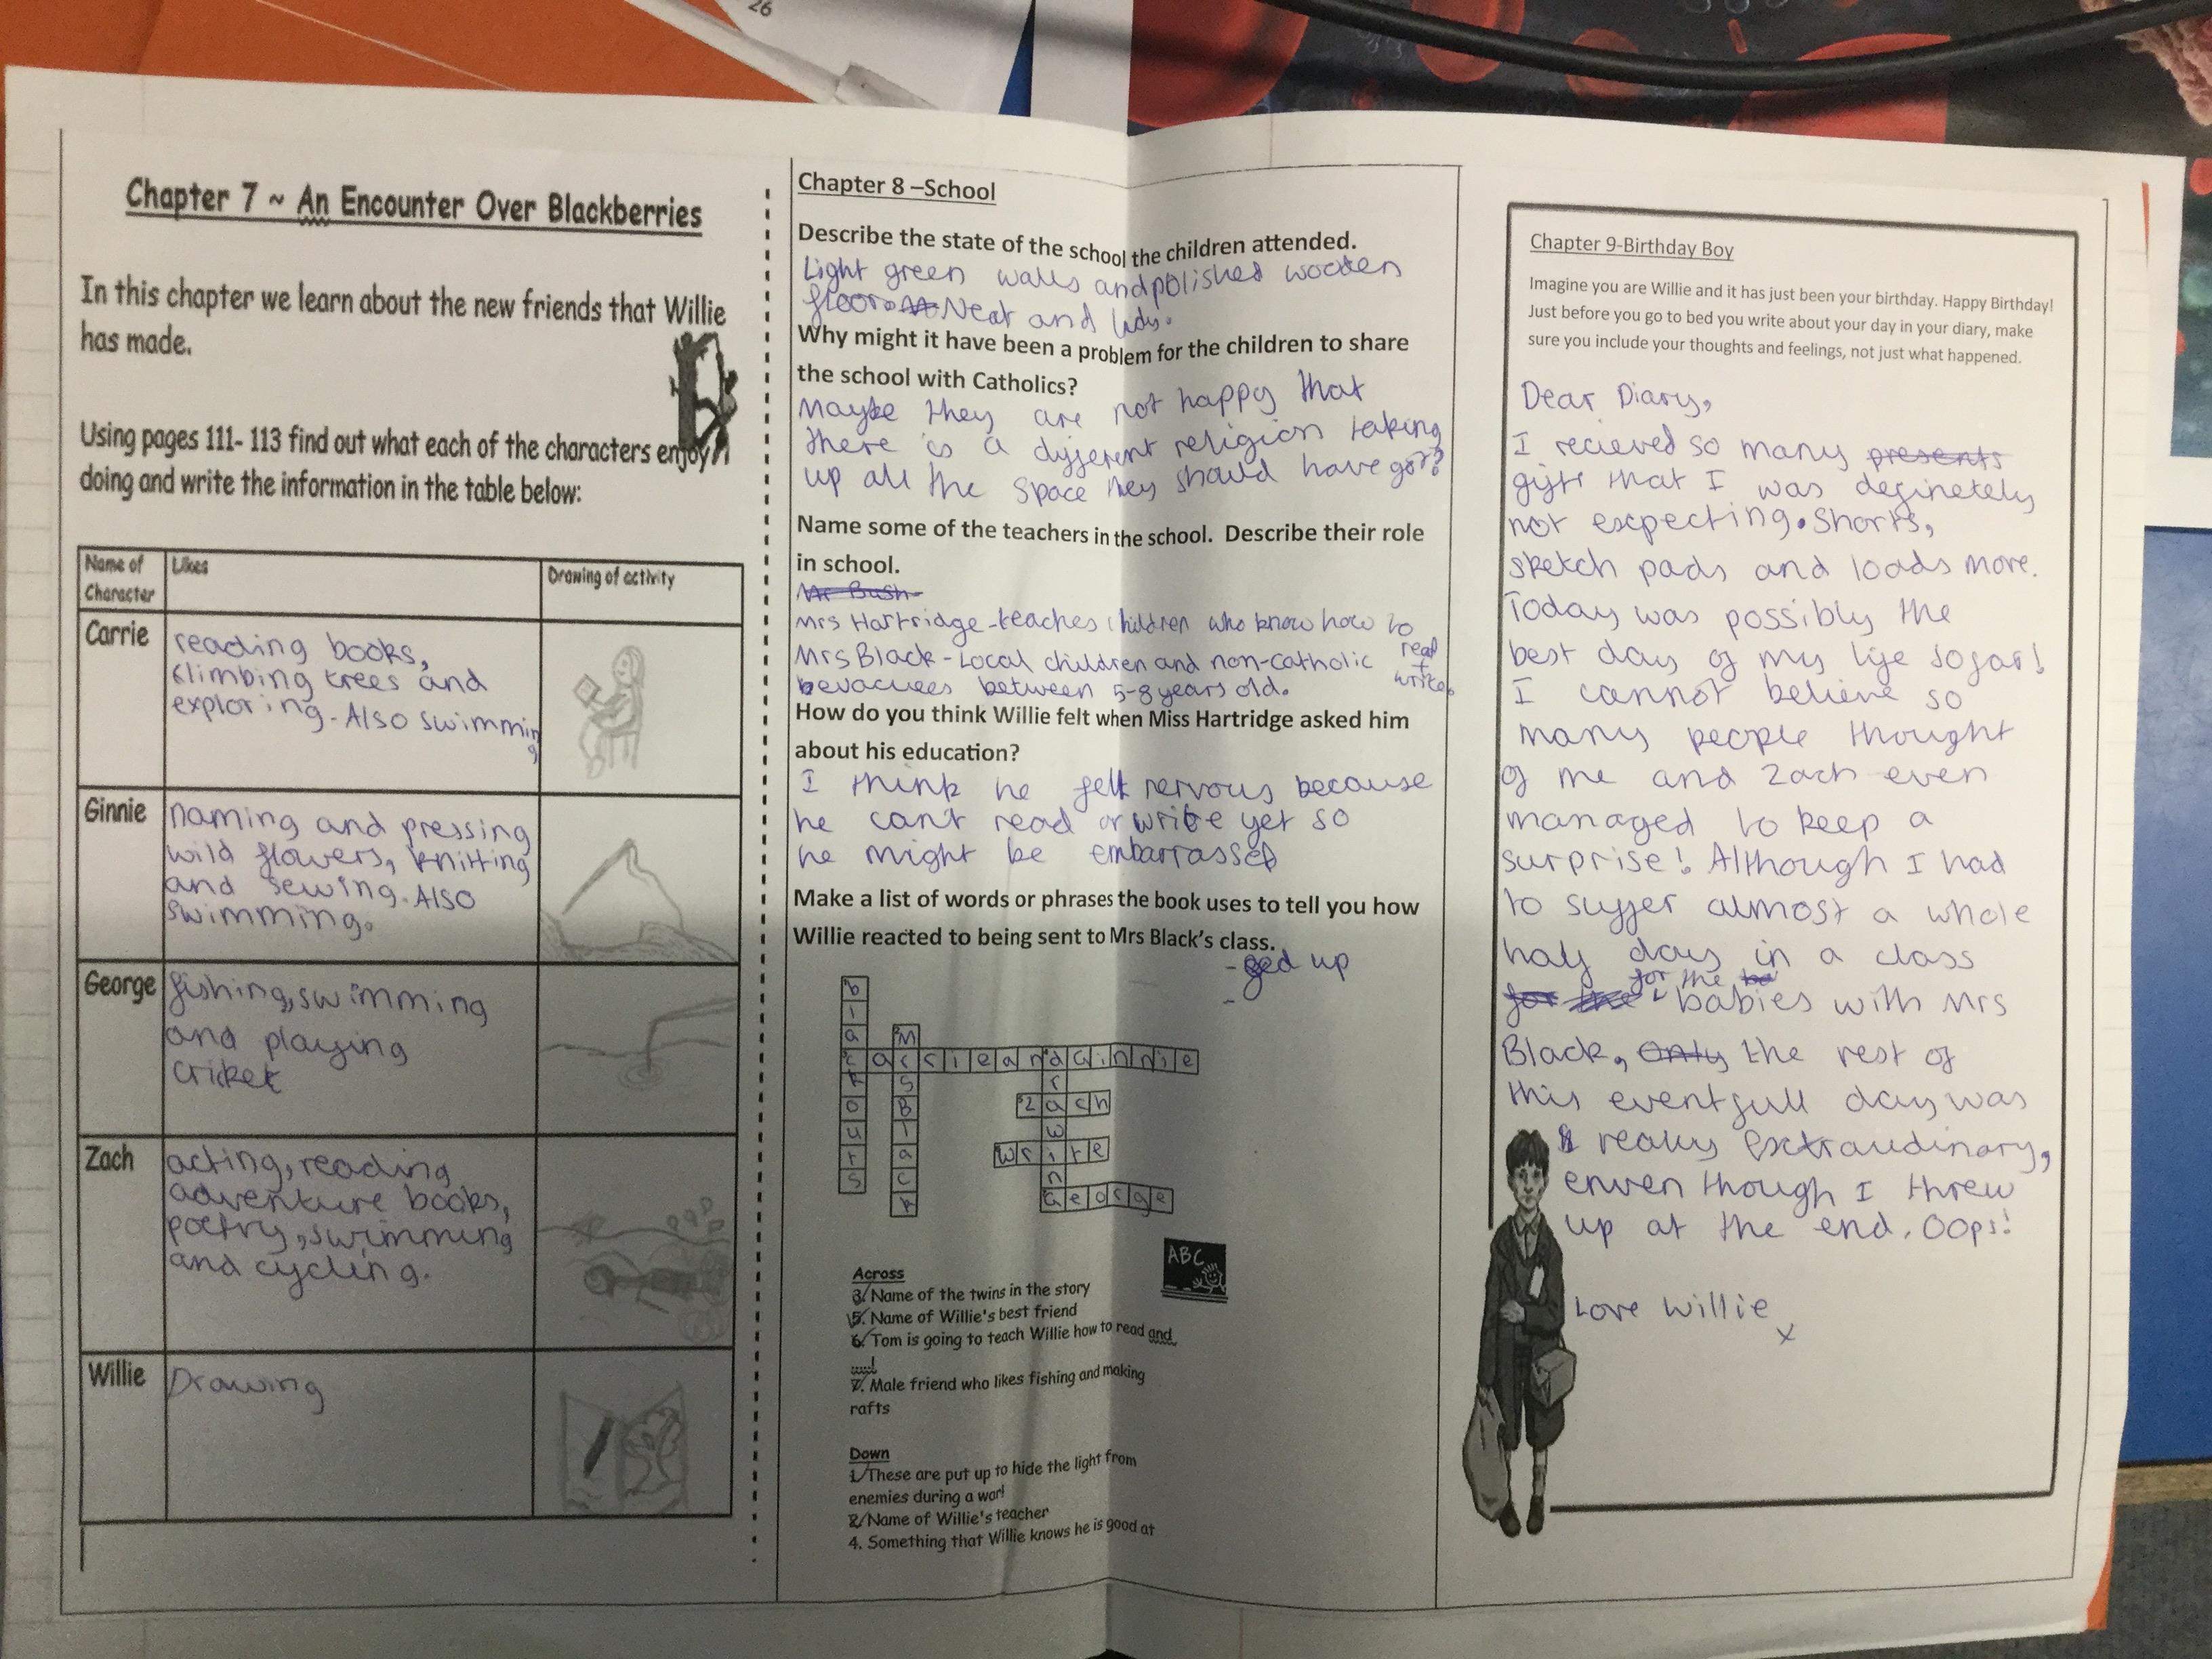 26
Chapter 7 ~ An Encounter Over Blackberries
In this chapter we learn about the new friends that Willie
has made.
Using pages 111- 113 find out what each of the characters enjoy
doing and write the information in the table below:
Name of
Character
Likes
Drawing of activity
Carrie
reading books,
climbing trees and
exploring. Also swimming
Ginnie
naming and pressing
wild flowers, knitting
and sewing. Also
swimming.
George
fishing, swimming
and playing
cricket
Zach
acting, reading
adventure books,
poetry, swimming
and cycling.
Willie
Drawing
Chapter 8 –School
Describe the state of the school the children attended.
Light green walls and polished wooden
floor. Neat and tidy.
Why might it have been a problem for the children to share
the school with Catholics?
Maybe they are not happy that
there is a different religion taking
up all the space they should have got?
Name some of the teachers in the school. Describe their role
in school.
Mr Bush
Mrs Hartridge - teaches children who know how to
read + write.
Mrs Black - Local children and non-catholic
bevacuees between 5-8 years old.
How do you think Willie felt when Miss Hartridge asked him
about his education?
I think he felt nervous because
he can't read or write yet so
he might be embarrassed
Make a list of words or phrases the book uses to tell you how
Willie reacted to being sent to Mrs Black's class.
- fed up
-
blackouts
MrsBlack
carrieandGinnie
drawing
Zach
write
George
ABC
Across
3. Name of the twins in the story
5. Name of Willie's best friend
6. Tom is going to teach Willie how to read and
7. Male friend who likes fishing and making
rafts
Down
1. These are put up to hide the light from
enemies during a war!
2. Name of Willie's teacher
4. Something that Willie knows he is good at
Chapter 9-Birthday Boy
Imagine you are Willie and it has just been your birthday. Happy Birthday!
Just before you go to bed you write about your day in your diary, make
sure you include your thoughts and feelings, not just what happened.
Dear Diary,
I recieved so many presents
gifts that I was definetely
not expecting. Shorts,
sketch pads and loads more.
Today was possibly the
best day of my life so far!
I cannot believe so
many people thought
of me and Zach even
managed to keep a
surprise! Although I had
to suffer almost a whole
half day in a class
for the for the babies with Mrs
Black, Only the rest of
this eventfull day was
really Extraudinary,
enven though I threw
up at the end. Oops!
Love Willie
x